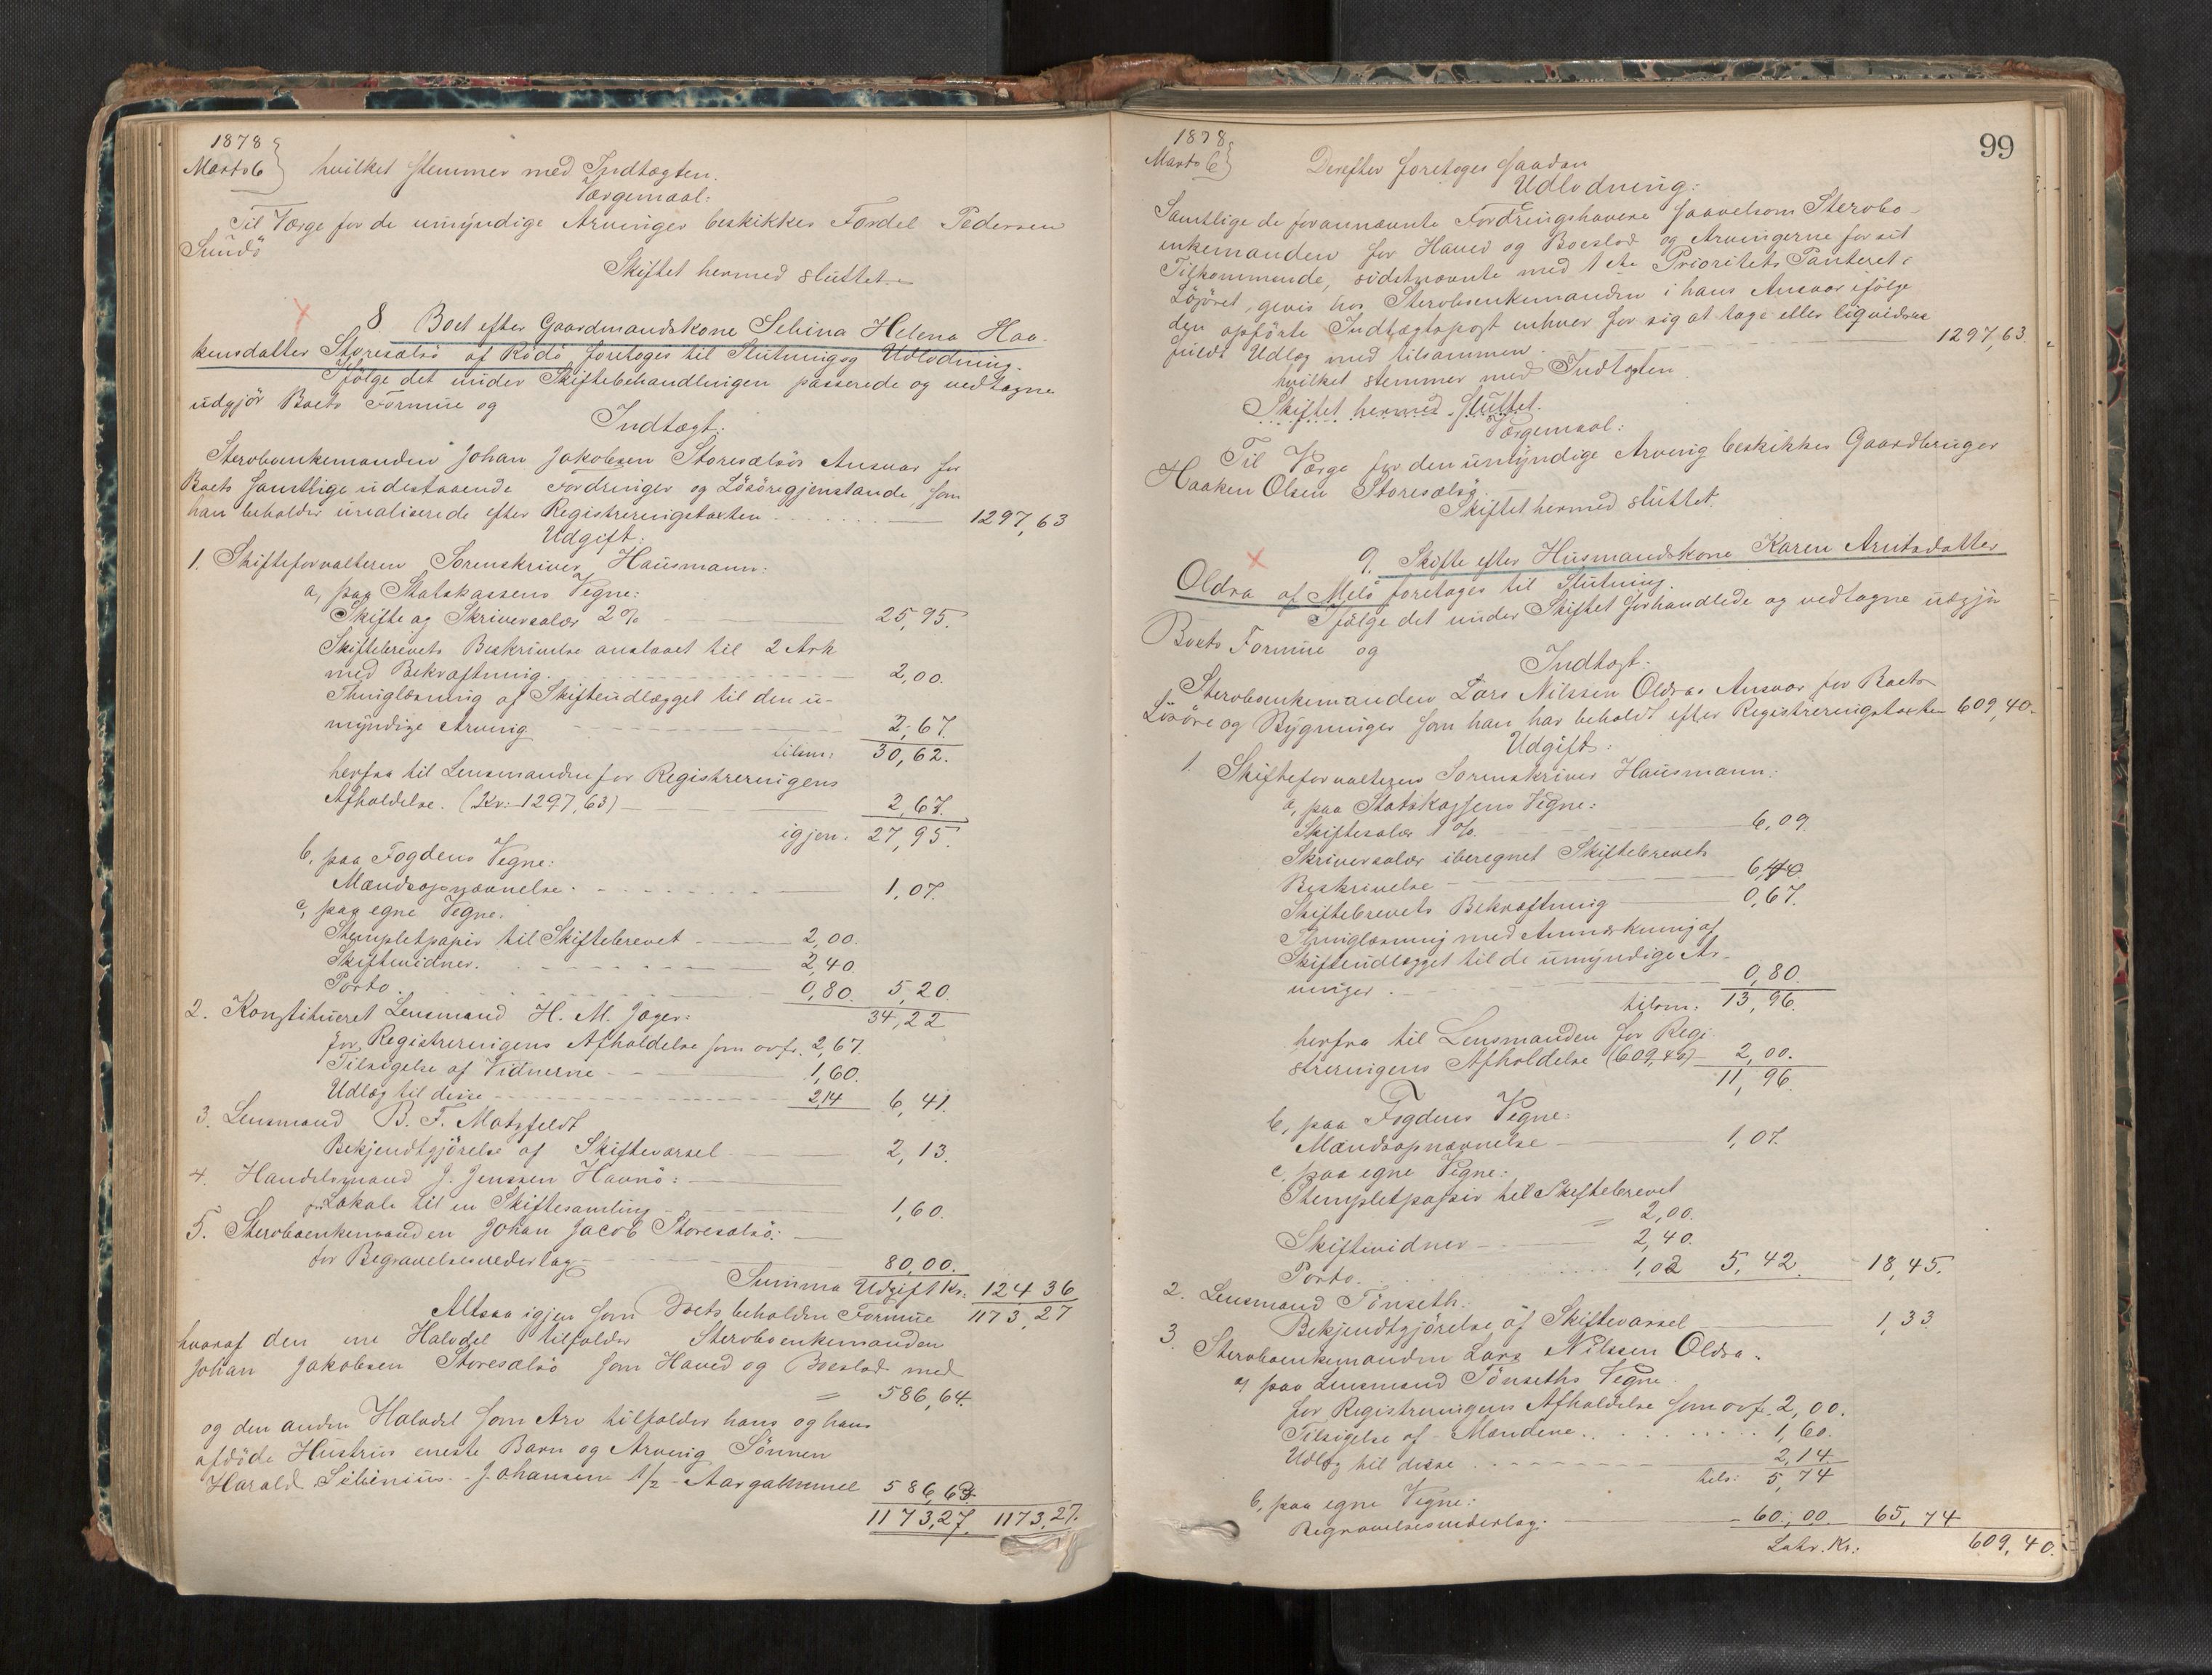 1878
Marts 6 } hvilket stemmer med Indtægten.
Værgemaal:
Til Værge for de umyndige Arvinger beskikkes Tordel Pedersen
Sundö
Skiftet hermed sluttet.
8. Boet efter Gaardmandskone Sebina Helena Haa-
kensdatter Storesælsö af Rödö foretoges til Slutning og Udlodning.
Ifölge det under Skiftebehandlingen passerede og vedtagne
udgjör Boets Formue og
Indtægt:
Sterboenkemanden Johan Jakobsen Storesælsös Ansvar for
Boets samtlige udestaaende Fordringer og Lösöregjenstande som
han beholder urealiserede efter Registreringstaxten 1297,63
Udgift:
1. Skifteforvalteren Sorenskriver Hausmann:
a, paa Statskassens Vegne:
Skifte og Skriversalær 2% 25,95.
Skiftebrevets Beskrivelse anslaaet til 2 Ark
med Bekræftning. 2,00.
Thinglæsning af Skifteudlægget til den u-
myndige Arving 2,67.
tilsm: 30,62.
herfra til Lensmanden for Registreringens
Afholdelse. (Kr: 1297,63) 2,67.
igjen: 27,95.
b, paa Fogdens Vegne:
Mandsopnævnelse. 1,07.
c, paa egne Vegne.
Stempletpapir til Skiftebrevet 2,00.
Skiftevidner. 2,40.
Porto 0,80. 5,20.
34,22
2. Konstitueret Lensmand H. M. Jæger:
for Registreringens Afholdelse som ovf. 2,67.
Tilsigelse af Vidnerne 1,60.
Udlæg til disse 2,14 6,41.
3. Lensmand B. F. Matzfeldt
Bekjendtgjörelse af Skiftevarsel 2,13.
4. Handelsmand J. Jenssen Havnö:
for Lokale til en Skiftesamling 1,60.
5. Sterboenkemanden Johan Jacob Storesælsö:
for Begravelsesvederlag 80,00.
Summa Udgift Kr: 124 36
Altsaa igjen som Boets beholdne Formue 1173,27
hvoraf den ene Halvdel tilfalder Sterboenkemanden
Johan Jakobsen Storesælsö som Hoved og Boeslod med
= 586,64.
og den anden Halvdel som Arv tilfalder hans og hans
afdöde Hustrus eneste Barn og Arving Sönnen
Harald Sebinius Johansen 1/2 Aar gammel 586,63
1173,27. 1173,27.
99
1878
Marts 6 } Derefter foretoges saadan
Udlodning:
Samtlige de forannævnte Fordringshavere saavelsom Sterbo-
enkemanden for Hoved og Boeslod og Arvingerne for sit
Tilkommende, sidstnævnte med 1ste Prioritets Panteret i
Lösöret, gives hos Sterboenkemanden i hans Ansvar ifölge
den opförte Indtægtspost enhver for sig at tage eller liqvideres
fuldt Udlæg med tilsammen 1297,63.
hvilket stemmer med Indtægten
Skiftet hermed sluttet.
Værgemaal:
Til Værge for den umyndige Arving beskikkes Gaardbruger
Haaken Olsen Storesælsö.
Skiftet hermed sluttet.
9. Skifte efter Husmandskone Karen Arntsdatter
Oldra af Melö foretoges til Slutning.
Ifölge det under Skiftet forhandlede og vedtagne udgjör
Boets Formue og
Indtægt:
Sterboenkemanden Lars Nilssen Oldras Ansvar for Boets
Lösöre og Bygninger som han har beholdt efter Registreringstaxten 609,40.
Udgift:
1. Skifteforvalteren Sorenskriver Hausmann:
a, paa Statskassens Vegne:
Skiftesalær 1 %. 6,09
Skriversalær iberegnet Skiftebrevets
Beskrivelse 6,40.
Skiftebrevets Bekræftning 0,67.
Thinglæsning med Anmærkning af
Skifteudlægget til de umyndige Ar-
vinger. 0,80.
tilsm. 13,96.
herfra til Lensmanden for Regi-
streringens Afholdelse (609,40) 2,00.
11,96.
b, paa Fogdens Vegne:
Mandsopnævnelse 1,07.
c, paa egne Vegne:
Stempletpapir til Skiftebrevet
= 2,00.
Skiftevidner 2,40.
Porto. 1,02 5,42. 18,45.
2. Lensmand Tönseth:
Bekjendtgjörelse af Skiftevarsel 1,33.
3. Sterboenkemanden Lars Nilssen Oldra.
a, paa Lensmand Tönseths Vegne.
for Registreringens Afholdelse som ovf. 2,00.
Tilsigelse af Mændene. 1,60.
Udlæg til disse 2,14
tils: 5,74
b, paa egne Vegne:
Begravelsesvederlag. 60,00. 65,74
Latr. Kr: 609,40.